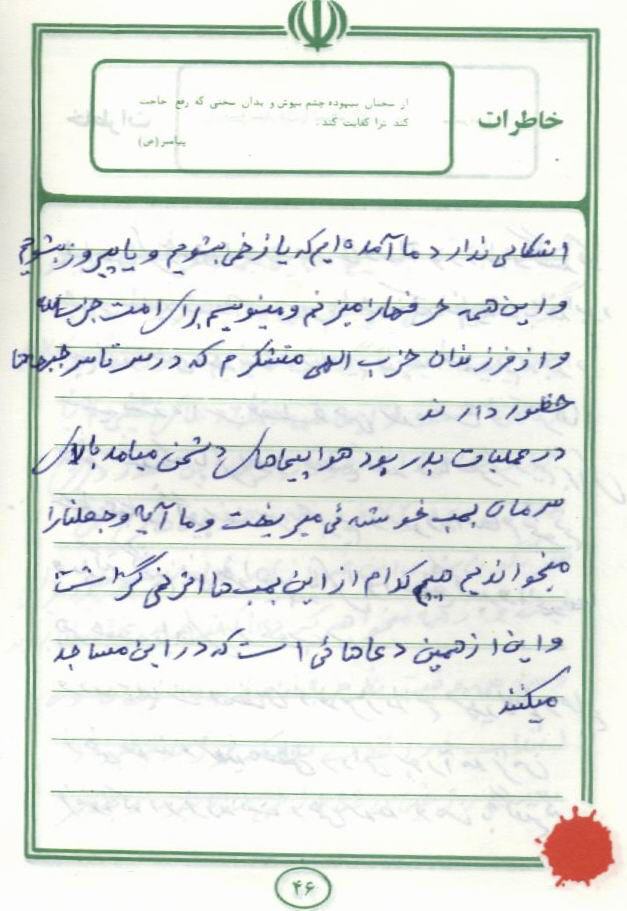 خاطرات
از سخنان بیهوده چشم بپوش و بدان سخنی که رفع حاجت
کند ترا کفایت کند.
پیامبر (ص)
اشکالی ندارد ما آمده ایم که یا زخمی بشویم و یا پیروز بشویم
و این همه حرفها را میزنم و مینویسم برای امت حزب الله
و از فرزندان حزب الهی متشکرم که در سرتاسر جبهه ها
حظور دارند
در عملیات بدر بود هواپیماهای دشمن میامد بالای
سرمان بمب خوشه ئی میریخت و ما آیه وجعلنا را
میخواندیم هیچ کدام از این بمب ها اثر نمی گذاشت
و این از همین دعاهائی است که در این مساجد
میکنند
۴۶